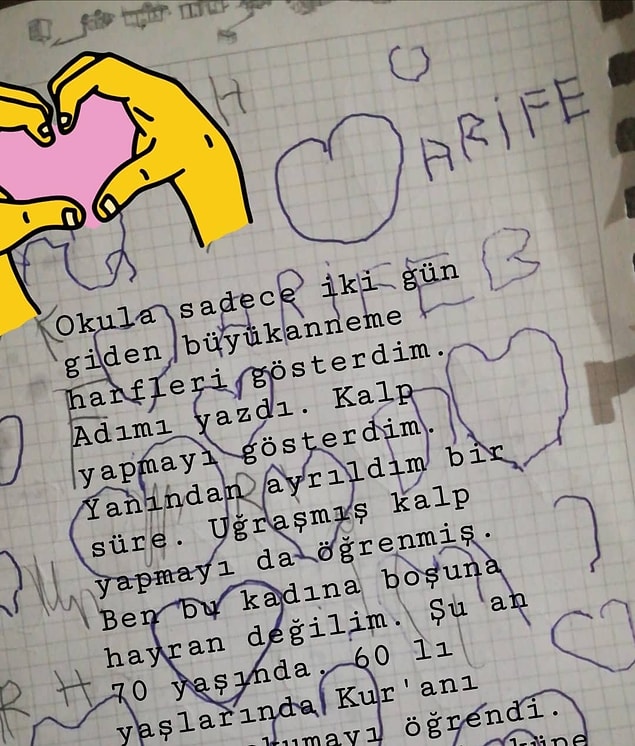 H
ARİFE
ARİFE B
Okula sadece iki gün
giden büyükanneme
harfleri gösterdim.
Adımı yazdı. Kalp
yapmayı gösterdim.
Yanından ayrıldım bir
süre. Uğraşmış kalp
yapmayı da öğrenmiş.
Ben bu kadına boşuna
hayran değilim. Şu an
70 yaşında. 60 lı
yaşlarında Kur'anı
öğrendi.
R H